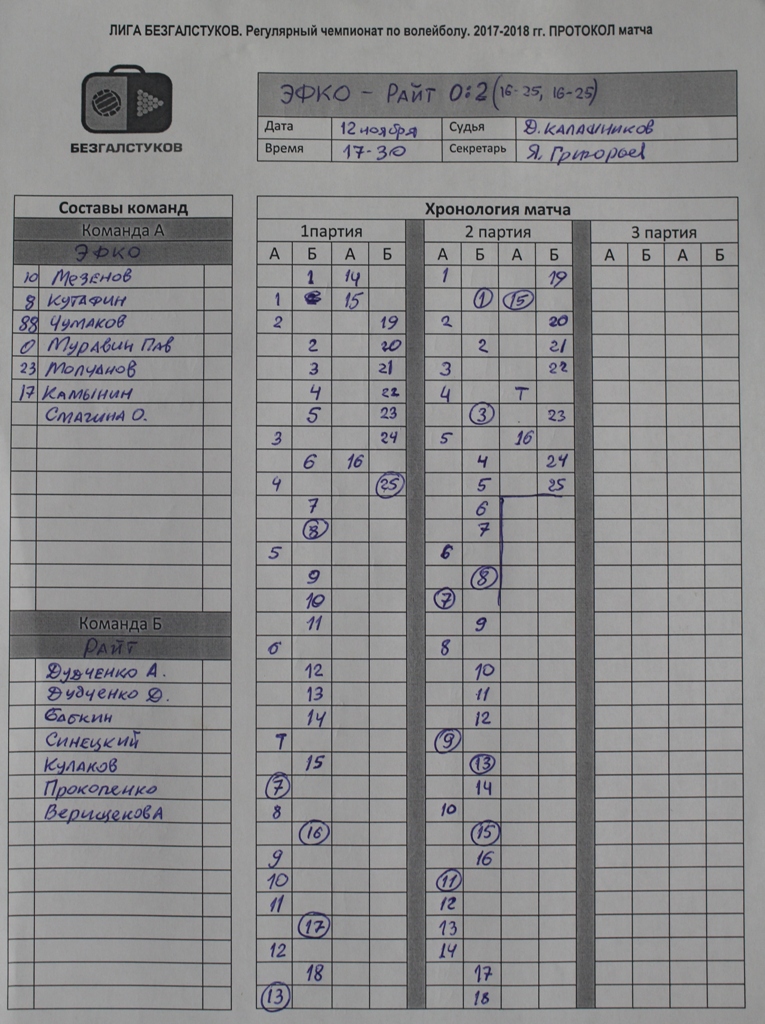 ЛИГА БЕЗГАЛСТУКОВ. Регулярный чемпионат по волейболу. 2017-2018 гг. ПРОТОКОЛ матча
БЕЗГАЛСТУКОВ
ЭФКО - РАЙТ 0:2 (16-25, 16-25)
Дата 12 ноября Судья Д. КАЛАШНИКОВ
Время 17-30 Секретарь Я.
Составы команд
Команда А
ЭФКО
10 Мезенов
8 КУТАФИН
88 Чумаков
0 Муравин Пав
23 Молчанов
17 Камынин
Смагина О.
Команда Б
РАЙТ
Дудченко А.
Дудченко Д.
Бабкин
Синецкий
Кулаков
Прокопенко
Хронология матча
1партия 2 партия 3 партия
А Б А Б А Б А Б А Б А Б
1 14 1 19
1 15 1 15
2 19 2 20
2 20 2 21
3 21 3 22
4 22 4 Т
5 23 3 23
3 24 5 16
6 16 4 24
4 25 5 25
7 6
8 7
5 6
9 8
10 7
11 9
6 8
12 10
13 11
14 12
Т 9
15 13
7 14
8 10
16 15
9 16
10 11
11 12
17 13
12 14
18 17
13 18